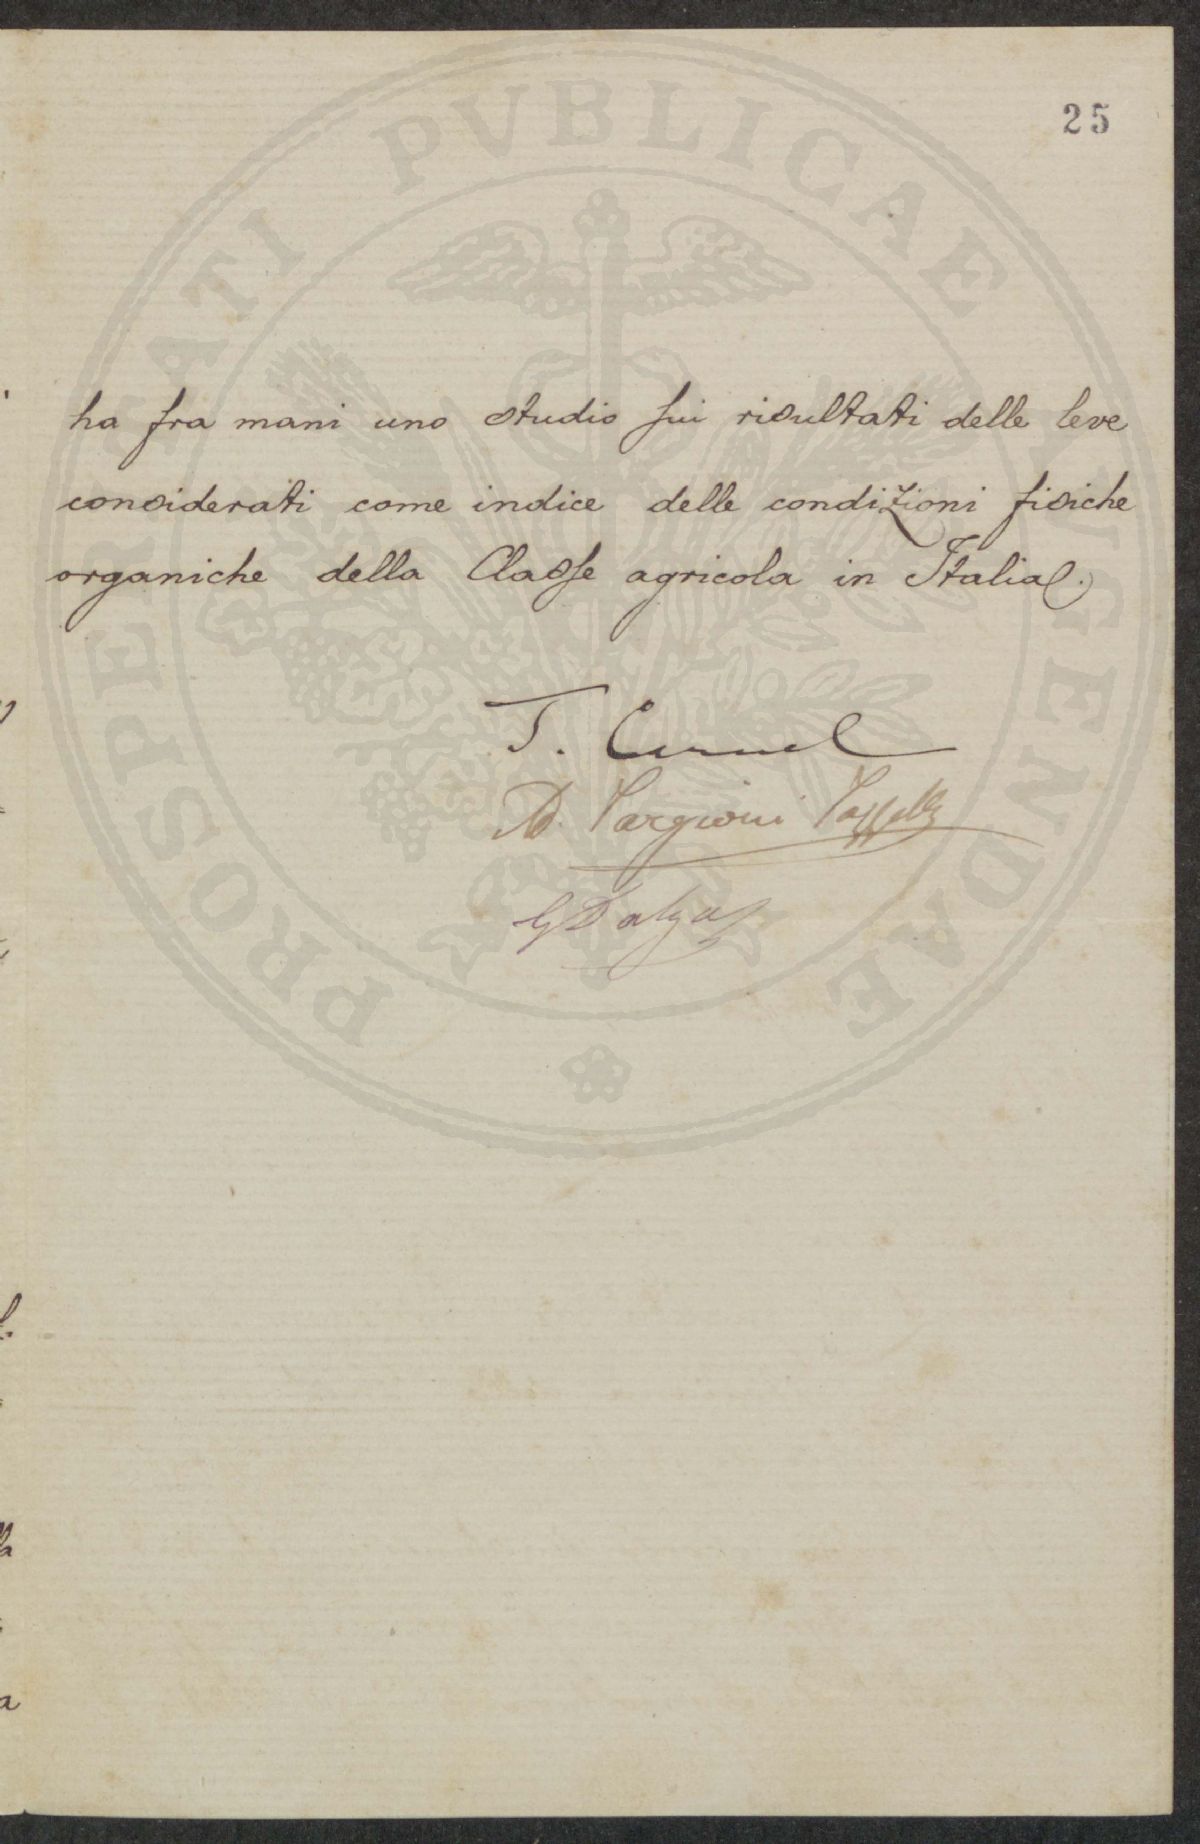 25
ha fra mani uno studio sui risultati delle leve
considerati come indice delle condizioni fisiche
organiche della Classe agricola in Italia.
T. Caruel
Ad. Targioni Tozzetti
G Dalgas
PROSPERITATI PVBLICAE AVGENDAE